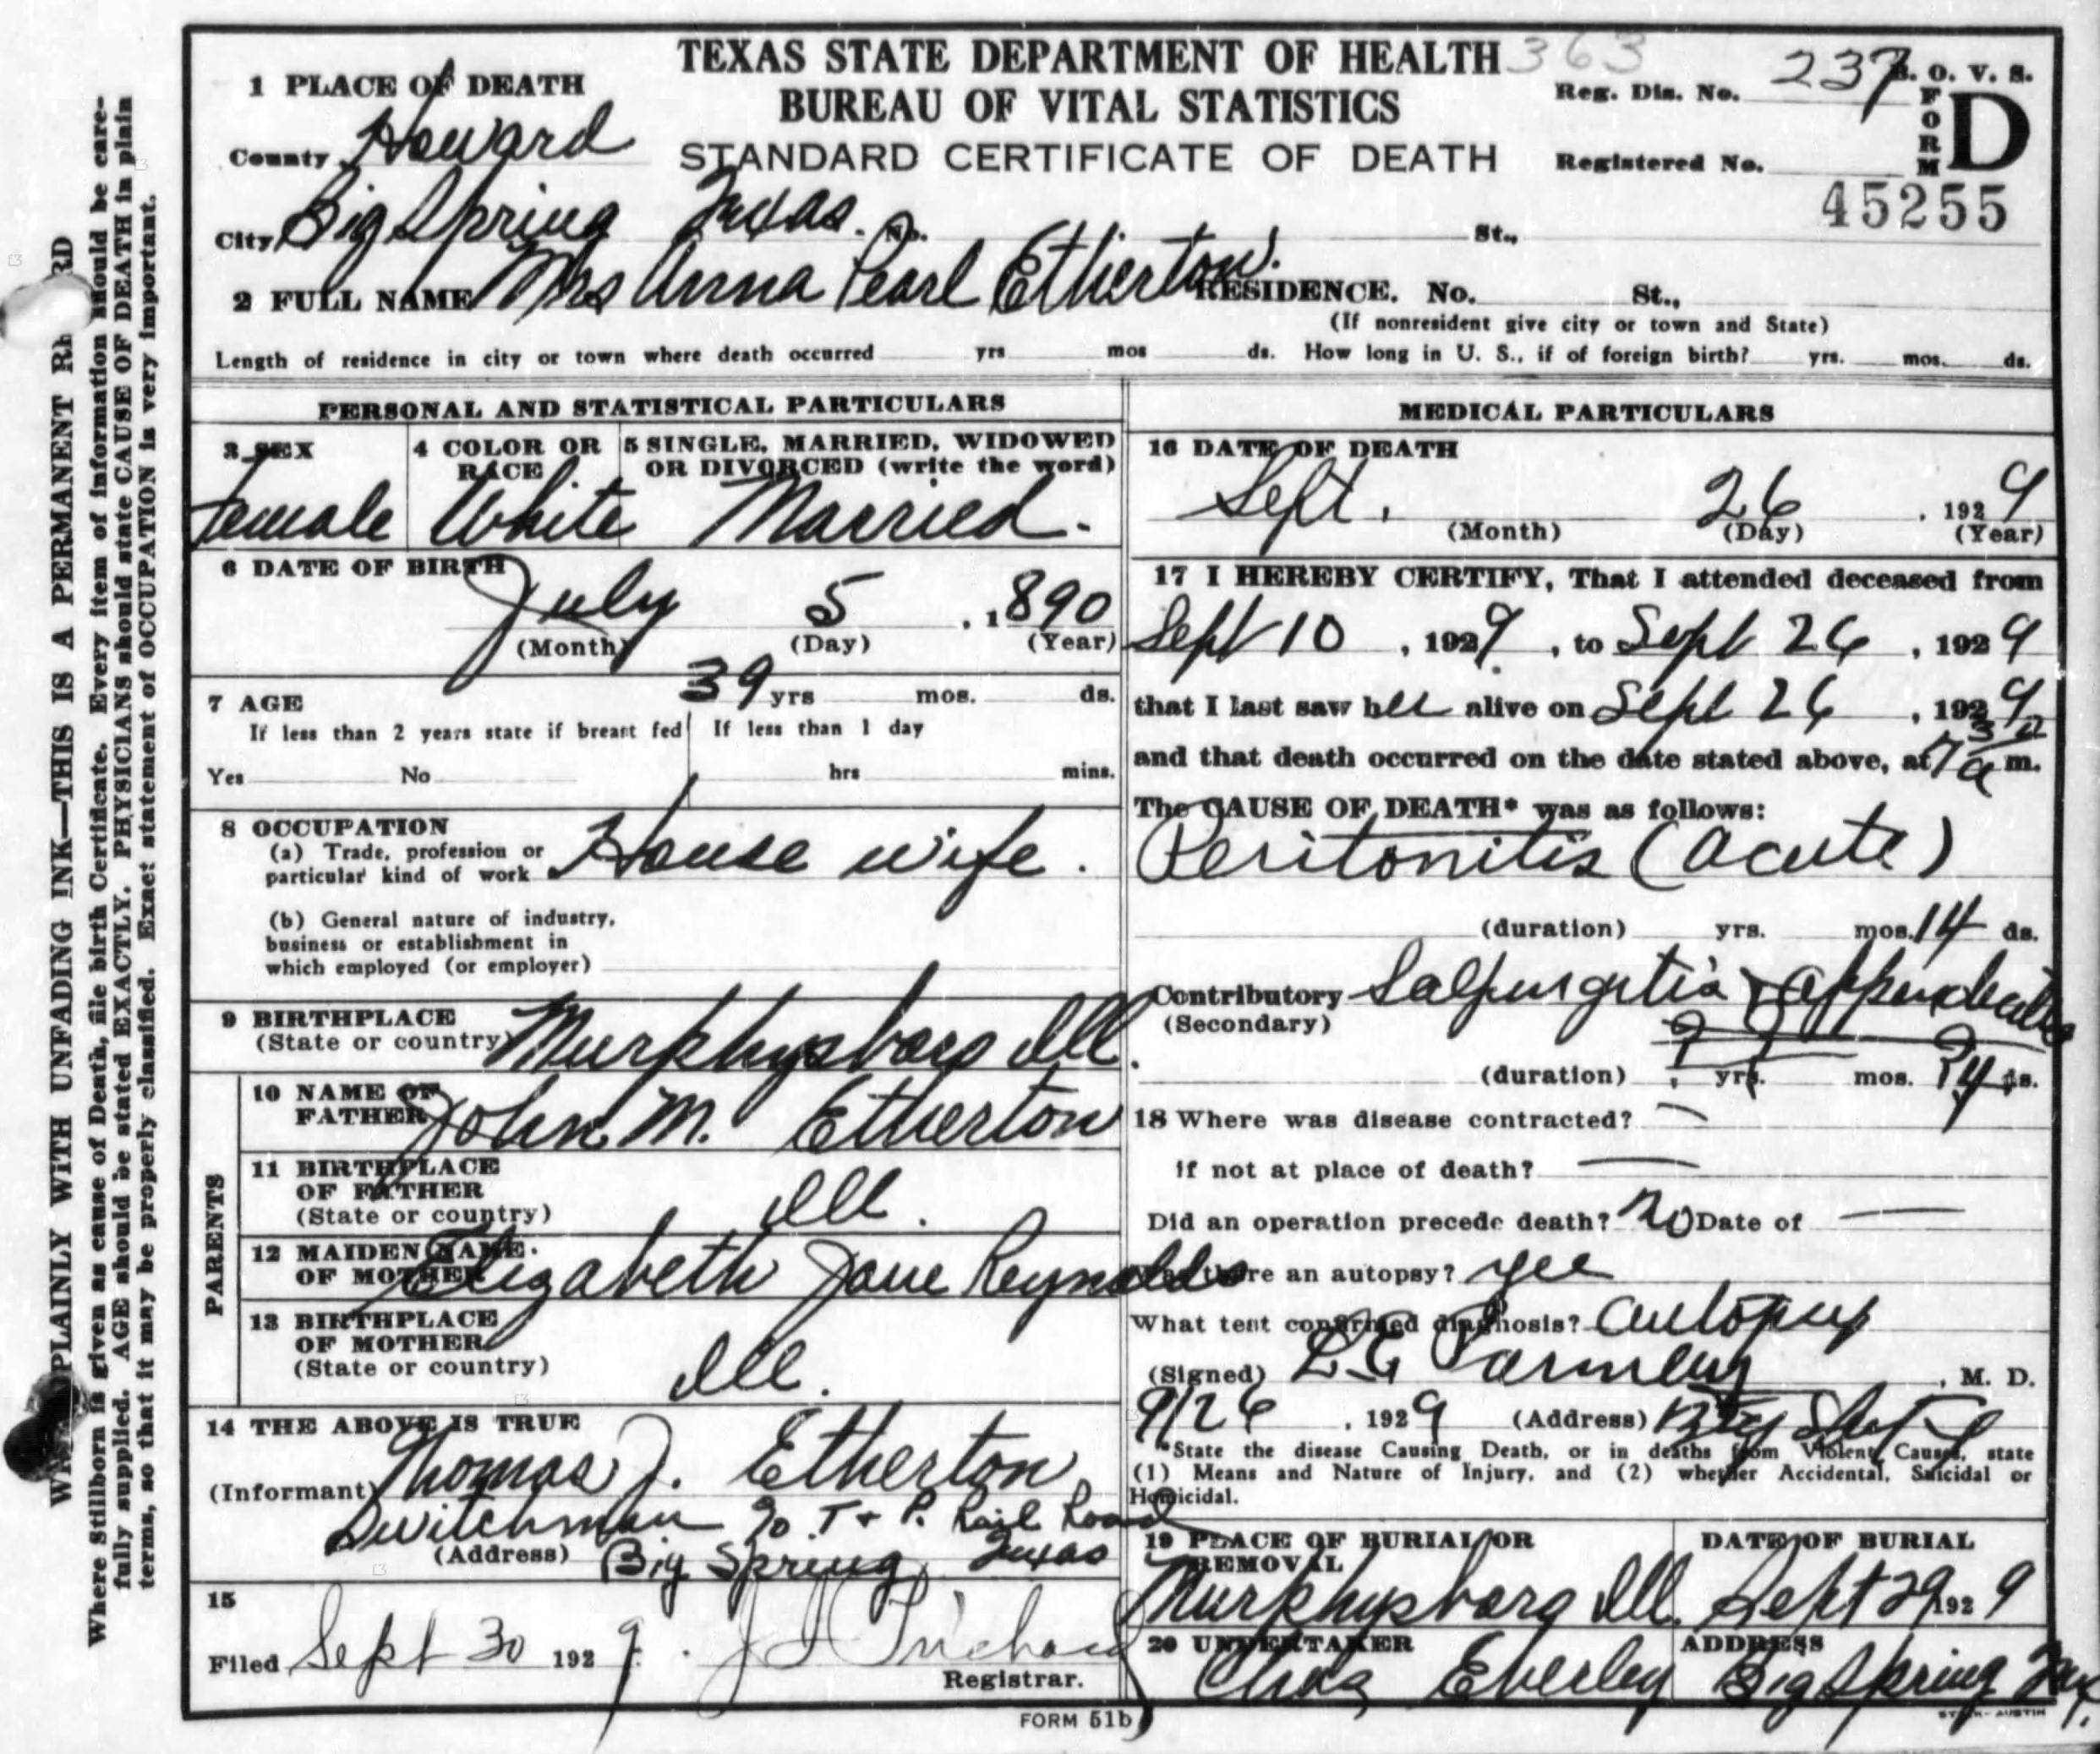 TEXAS STATE DEPARTMENT OF HEALTH 363
BUREAU OF VITAL STATISTICS
STANDARD CERTIFICATE OF DEATH
Reg. Dis. No. 237
B. O. V. S.
FORM D
Registered No.
45255
1 PLACE OF DEATH
County Howard
City Big Spring Texas. No. St.,
2 FULL NAME Mrs Anna Pearl Etherton. RESIDENCE. No. St.,
(If nonresident give city or town and State)
Length of residence in city or town where death occurred yrs mos ds. How long in U. S., if of foreign birth? yrs. mos. ds.
PERSONAL AND STATISTICAL PARTICULARS
3 SEX
Female
4 COLOR OR RACE
White
5 SINGLE, MARRIED, WIDOWED
OR DIVORCED (write the word)
Married.
6 DATE OF BIRTH
July 5, 1890
(Month) (Day) (Year)
7 AGE 39 yrs mos. ds.
If less than 2 years state if breast fed If less than 1 day
Yes No hrs mins.
8 OCCUPATION
(a) Trade, profession or
particular kind of work House wife.
(b) General nature of industry,
business or establishment in
which employed (or employer)
9 BIRTHPLACE
(State or country) Murphysboro Ill.
PARENTS
10 NAME OF
FATHER John M. Etherton
11 BIRTHPLACE
OF FATHER
(State or country) Ill.
12 MAIDEN NAME.
OF MOTHER Elizabeth Jane Reynolds
13 BIRTHPLACE
OF MOTHER
(State or country) Ill.
14 THE ABOVE IS TRUE
(Informant) Thomas J. Etherton
Switchman % T & P. Rail Road
(Address) Big Spring, Texas
15
Filed Sept 30 1929. J I Prichard
Registrar.
MEDICAL PARTICULARS
16 DATE OF DEATH
Sept. 26, 1929
(Month) (Day) (Year)
17 I HEREBY CERTIFY, That I attended deceased from
Sept 10, 1929, to Sept 26, 1929
that I last saw her alive on Sept 26, 1929
and that death occurred on the date stated above, at 7 30 a m.
The CAUSE OF DEATH* was as follows:
Peritonitis (acute)
(duration) yrs. mos. 14 ds.
Contributory Salpingitis & appendicitis
(Secondary)
(duration) ? yrs. mos. 14 ds.
18 Where was disease contracted? —
if not at place of death? —
Did an operation precede death? no Date of —
Was there an autopsy? yes
What test confirmed diagnosis? autopsy
(Signed) L E Parmley, M. D.
9/26, 1929 (Address) Big Spring
*State the disease Causing Death, or in deaths from Violent Causes, state
(1) Means and Nature of Injury, and (2) whether Accidental, Suicidal or
Homicidal.
19 PLACE OF BURIAL OR
REMOVAL
Murphysboro Ill.
DATE OF BURIAL
Sept 29 1929
20 UNDERTAKER
Chas Eberley
ADDRESS
Big Spring Tex.
FORM 51b
WRITE PLAINLY WITH UNFADING INK—THIS IS A PERMANENT RECORD
Where Stillborn is given as cause of Death, file birth Certificate. Every item of information should be care-
fully supplied. AGE should be stated EXACTLY. PHYSICIANS should state CAUSE OF DEATH in plain
terms, so that it may be properly classified. Exact statement of OCCUPATION is very important.